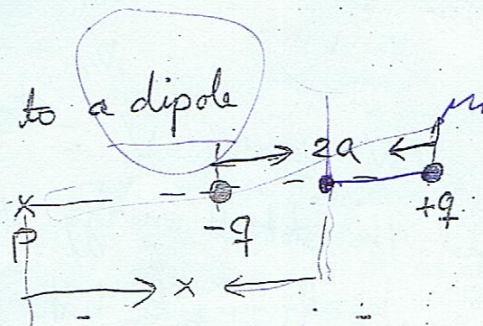 to a dipole
2a
-q
+q
P
x